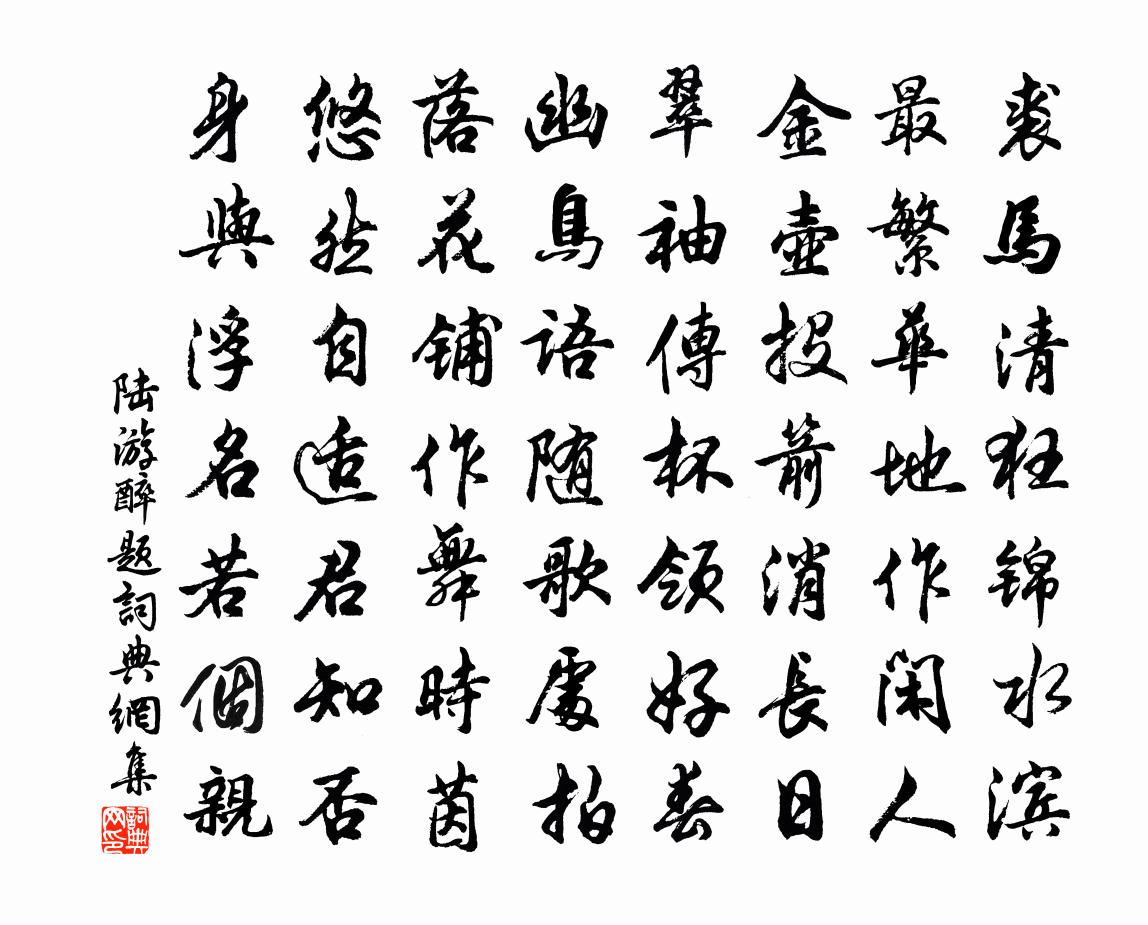 裘馬清狂锦水滨
最繁華地作闲人
金壺投箭消長日
翠袖傳杯领好春
幽鳥語随歌處拍
落花铺作舞時茵
悠然自适君知否
身與浮名若個親
陆游醉题詞典網集
詞典网印